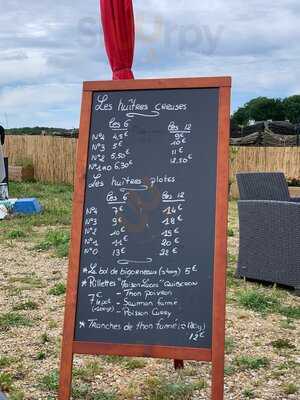 Sirvoy
Les huîtres creuses
Les 6 Les 12
N°4 4,5€ 9€
N°3 5€ 10€
N°2 5,50€ 11€
N°1 ou 0 6,30€ 12,50€
Les huîtres plates
Les 6 Les 12
N°4 7€ 14€
N°3 9€ 18€
N°2 10€ 19€
N°1 11€ 20€
N°0 13€
Le bol de bigorneaux 5€
Rillettes "Jean Quiberon"
7€ le pot - Thon poivron
- Saumon fumé
- Poisson Curry
* Tranches de thon fumé
12€